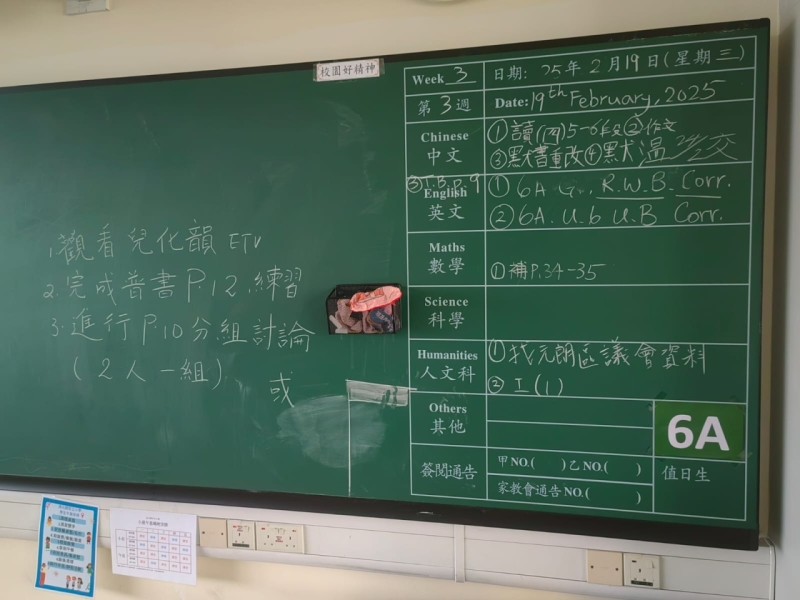 校園好精神
1. 觀看兒化韻 ETV
2. 完成普書 P.12 練習
3. 進行 P.10 分組討論
(2人一組)
或
Week 3
日期: 25年2月19日(星期三)
第3週
Date: 19th February, 2025
Chinese
中文
①讀(四)5-6 ②作文
③默書重改④默 溫 24/2交
③ T.B. p.9
English
英文
① 6A R.W.B. Corr.
② 6A. U.6 U.B Corr.
Maths
數學
①補P.34-35
Science
科學
Humanities
人文科
①找元朗區議會資料
② I(1)
Others
其他
6A
簽閱通告
甲NO.( )乙NO.( )
家教會通告NO.( )
值日生